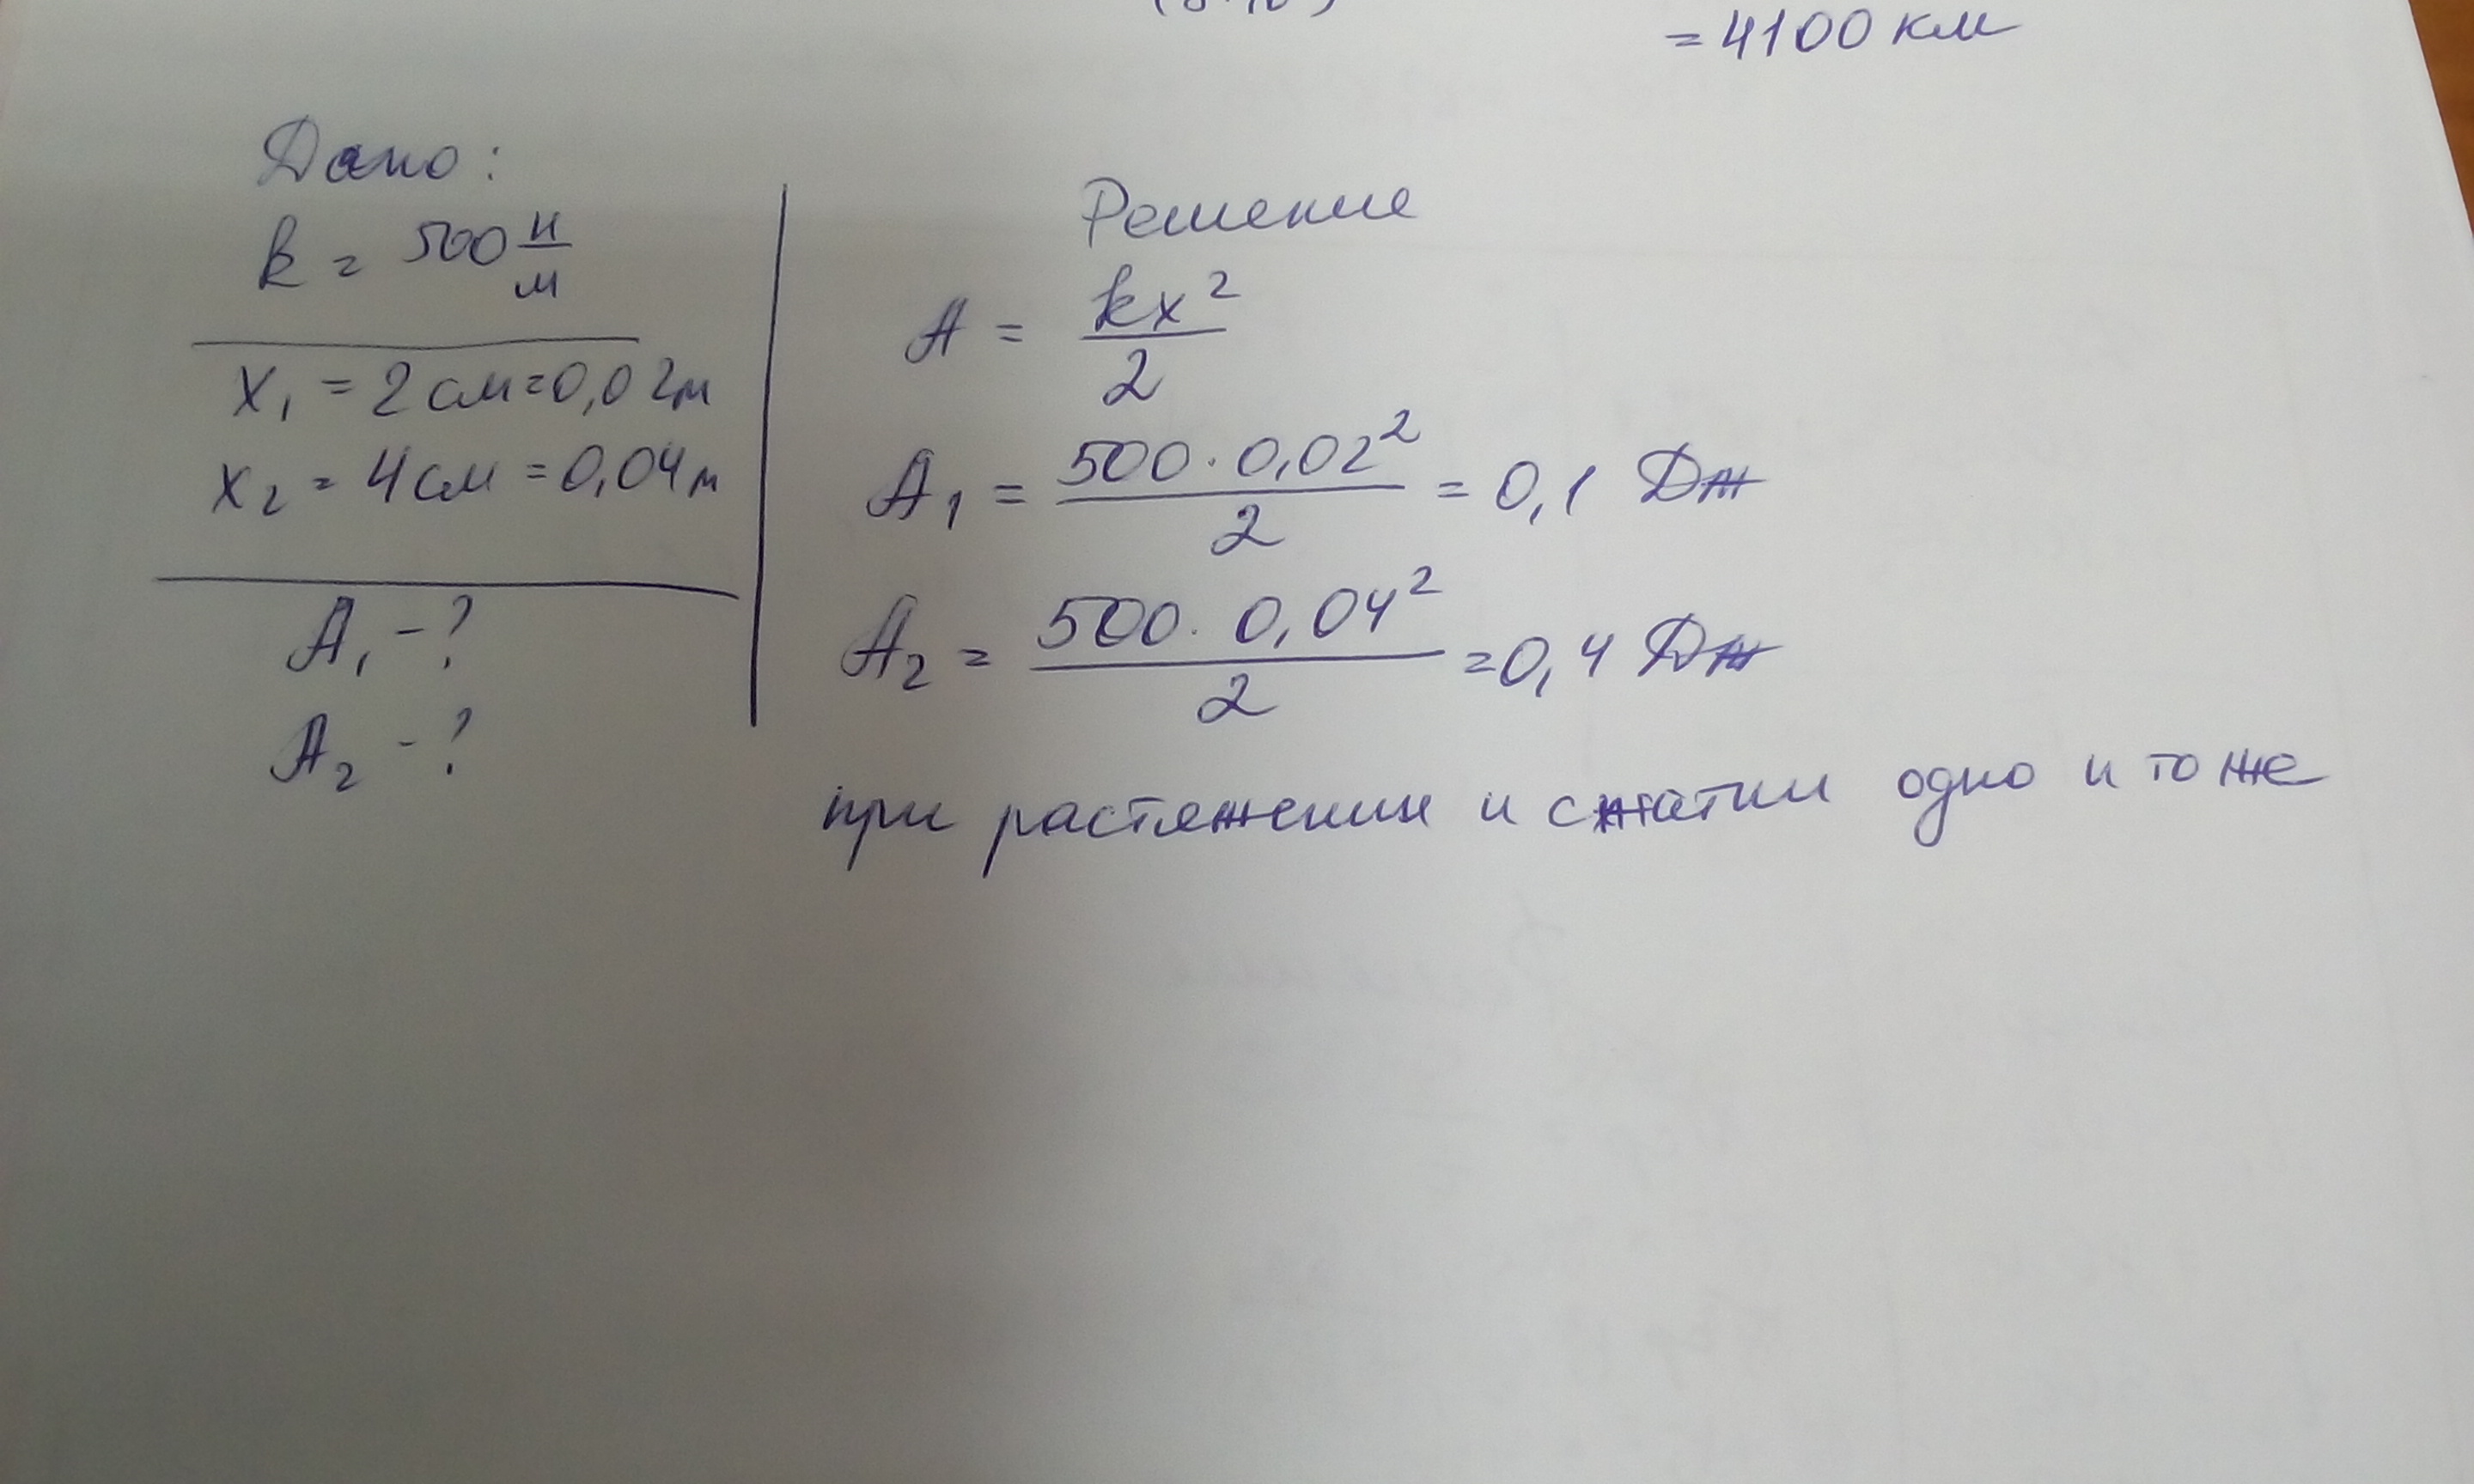 = 4100 км
Дано:
k = 500 н/м
x₁ = 2 см = 0,02 м
x₂ = 4 см = 0,04 м
A₁ - ?
A₂ - ?
Решение
A = kx²/2
A₁ = 500 · 0,02²/2 = 0,1 Дж
A₂ = 500 · 0,04²/2 = 0,4 Дж
при растяжении и сжатии одно и то же